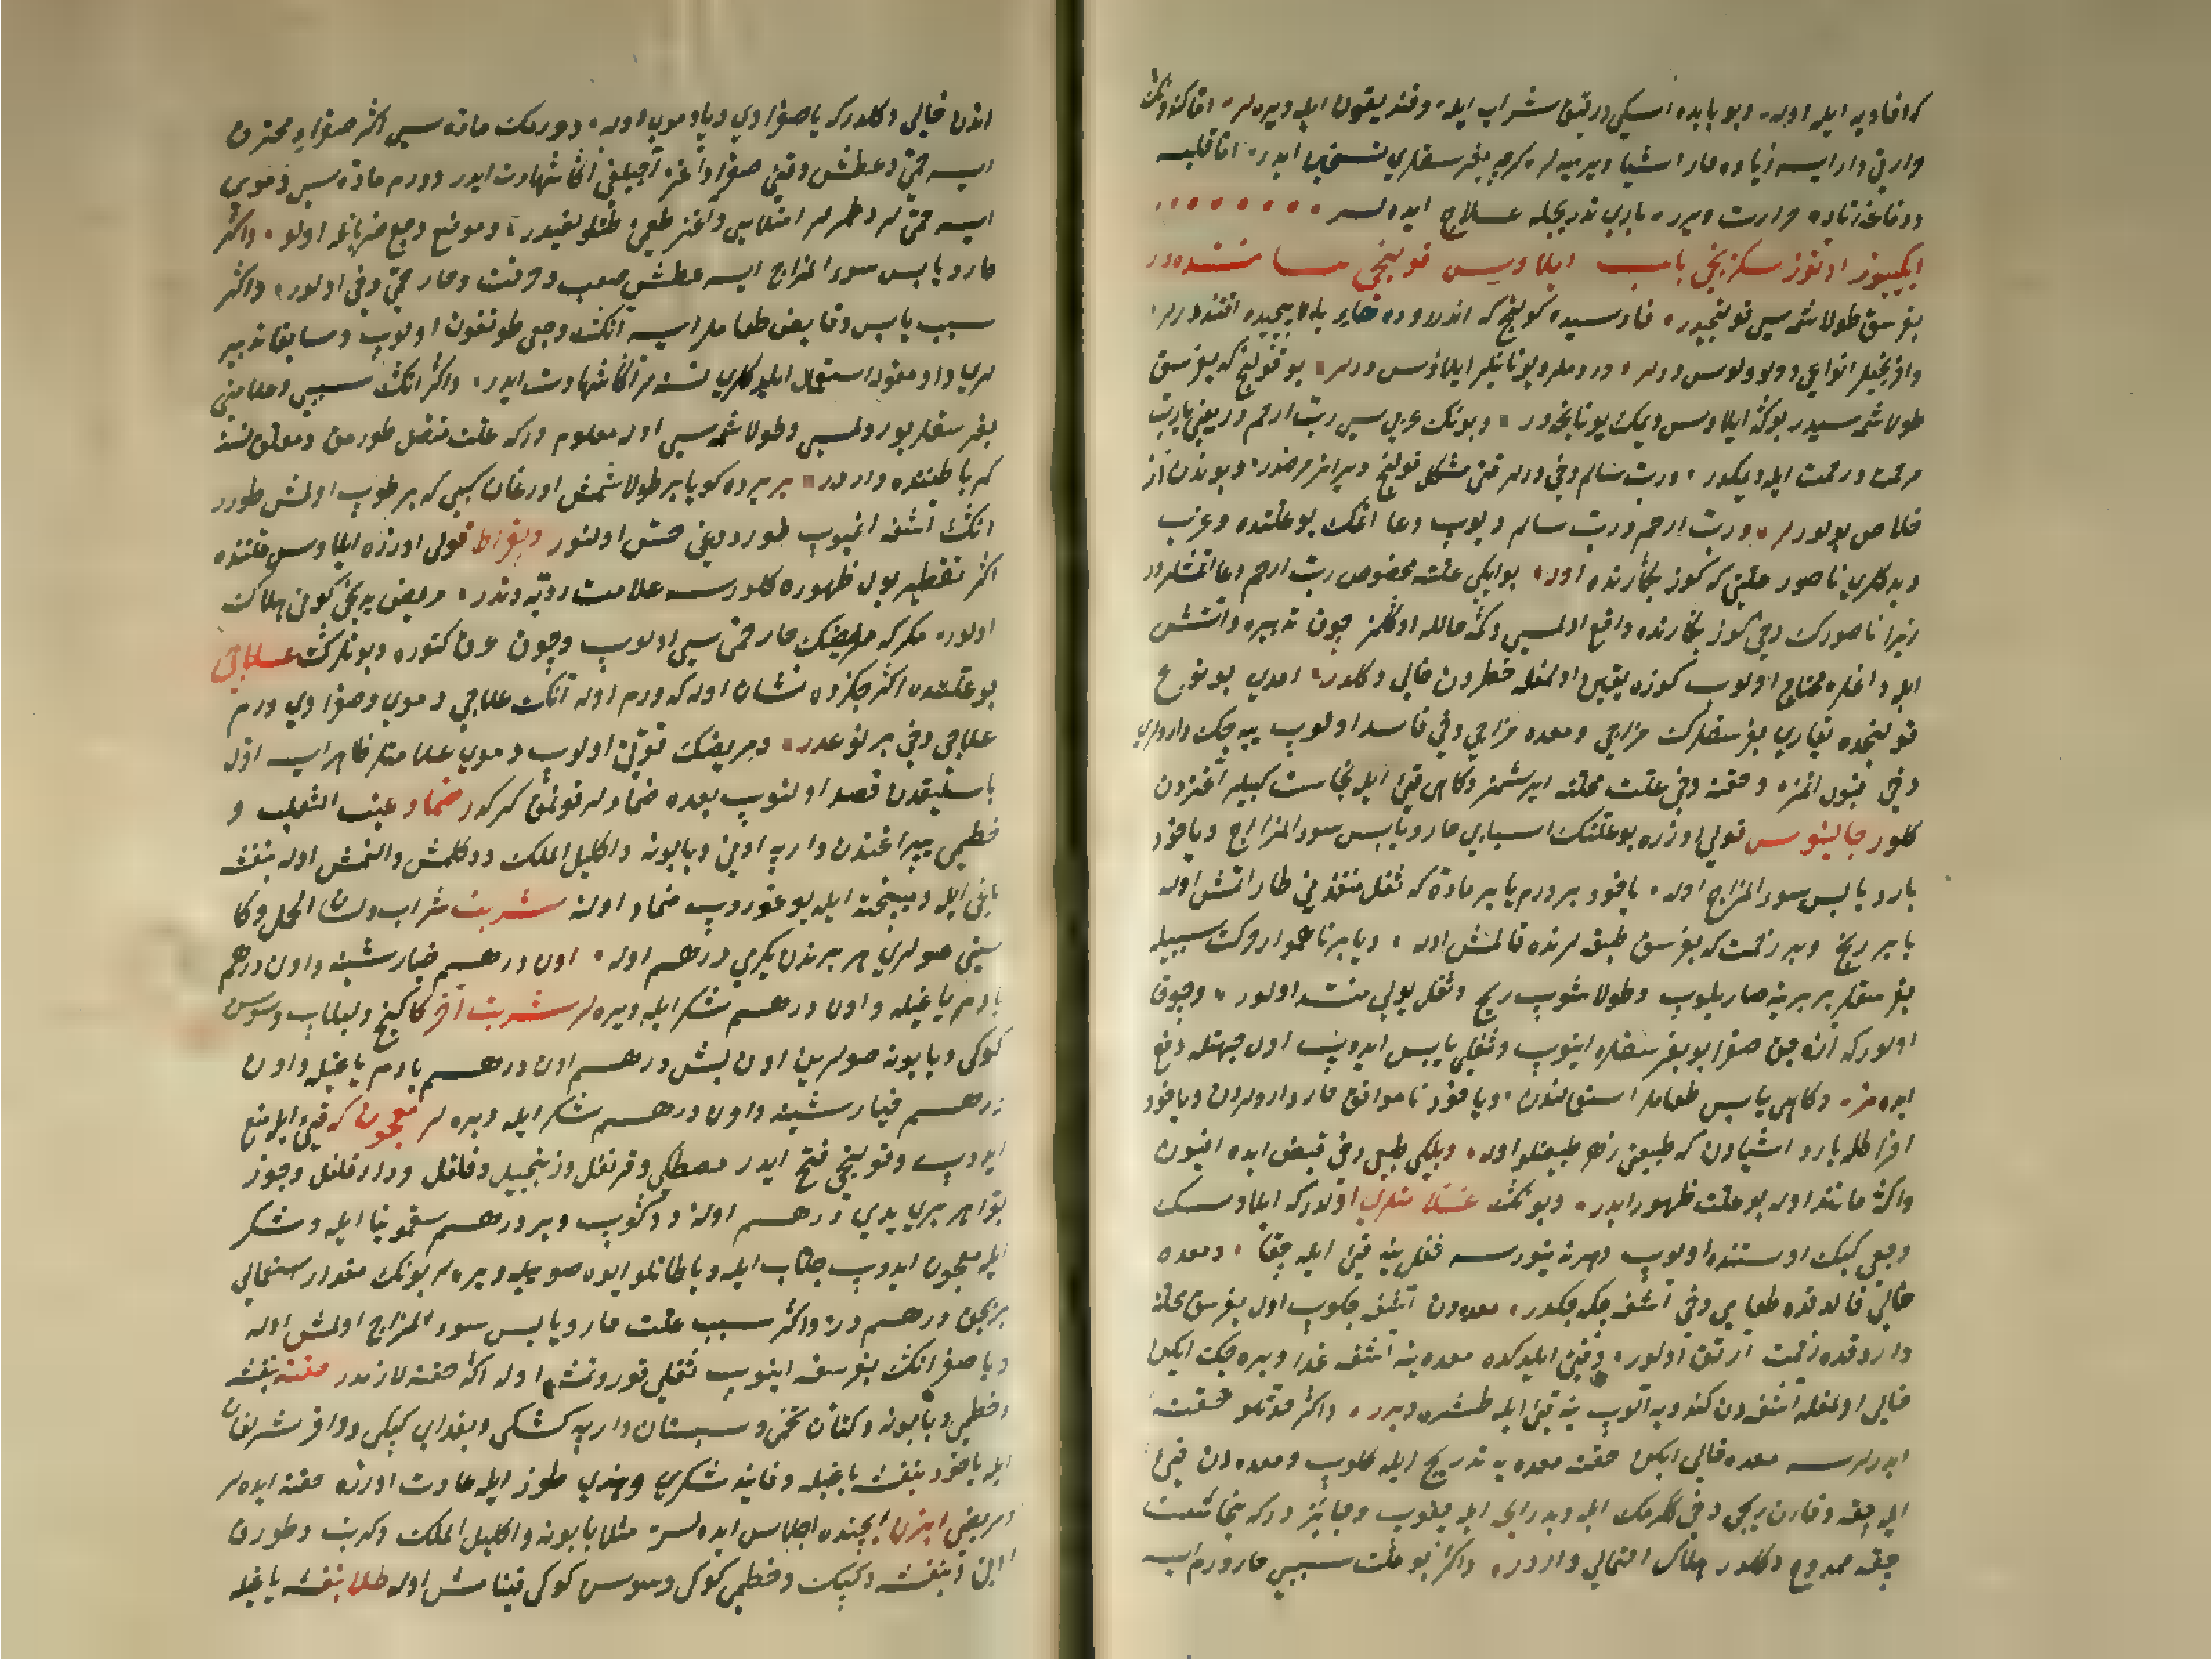 كه افاويه ايله اوله وبو بابده اسكي رقيق شراب ايله وقند يقون ايله ويره لر اما كندونك
حرارتى وار ايسه زياده حار اشيا ويرميه لر كرچه بغرسقلرى تسخين ايدر اما قلبه
ودماغه زياده حرارت ويرر بارى تدريجله علاج ايده لر
ايكييوز اوتوز سكزنجى باب ايلاوس قولنجى بياننده در
بغرسق طولاشمه سى قولنجيدر فارسيده كولنج كه اندروده
وافرنجيلر انواعى دولو ولوس درلر روملر ويونانيلر ايلاؤس درلر بو قولنج كه بغرسق
طولاشمه سيدر بوكا ايلاوس ديمك يونانجه در وبونك عربى سى رب ارحم در يعنى يا رب
مرحمت ايله ديمكدر ورب سلم دخى درلر قتى مشكل قولنج وبر امز مرضدر وبوندن از
خلاص بولورلر ورب ارحم ورب سلم ديوب دعا اتمك بو علتده وعرب
ديدكلرى ناصور علتى كه كوز بكارنده اولر بو ايكى علته مخصوص رب ارحم دعا اتمشلردر
زيرا ناصورك دخى كوز بكارنده واقع اولمسى دكمه حالله اوكلمز چون تدبيره واتش
ايله داغلره محتاج اولوب كوزه يقين اولمغله خطردن خالى دكلدر امدى بو نوع
قولنجده يقارى بغرسقلرك مزاجى ومعده مزاجى دخى فاسد اولوب ييه جك وداروىى
دخى قبول اتمز وحقنه دخى علت محلنه ايرشمز وكاهى قيئ ايله نجاست كبيلر اغزدن
كلور جالينوس قولى اوزره بو علتك اسبابى حار ويابس سوء المزاج وياخود
بارد يابس سوء المزاج اوله ياخود بر ورم يا بر ماده كه ثفل منفذينى طار اتمش اوله
يا بر ريح وبر زحمت كه بغرسق طبقلرنده قالمش اوله ويا بر ناهموار حركت سببيله
بغرسقلر بر برينه صاريلوب وطولاشوب ريح وثفل يولى منسد اولور وچوق
اولور كه آنى چق صفرا بو بغرسقلره اينوب وثفلى يابس ايدوب اول جهتله دفع
ايده مز وكاهى يابس طعاملر استعمالندن وياخود ناموافق حار دارولردن وياخود
افراطله بارد اشيادن كه طبيعتى زهر طبيعتلو اوله وبلكى طبعى دخى قبض ايده افيون
واكا مانند اوله بو علت ظهور ايدر وبونك علامتلرى اولدر كه ايلاوسك
وجعى كبك اوستنده اولوب وهر نه ينورسه ثفل ينه قيئ ايله چقا ومعده
خالى قالدقده طعامى دخى اشغه چكه چكدر معده دن اشغه چكوب اول بغرسق محلنه
واردقده زحمت ارتق اولور وقيئ ايلدكده معده ينه اشغه غذا ويره جك ايكن
خالى اولمغله اشغه دن كندويه الوب ينه قيئ ايله طشره ويرر واكر قوتلو حقنت
ايدرلرسه معده خالى ايكن حقنت معده يه تدريج ايله كلوب ومعده دن قيئ
ايله چقه وقارن ريحى دخى ككرمك ايله وبد رايحه ايله چقوب وجايز دركه نجاستمت
چقه ممدوح دكلدر هلاك احتمالى واردر واكر بو علت سببى حار ورم ايسه
اندن خالى دكلدر كه يا صفراوى ويا دموى اوله ورمك ماده سى اكثر صفراوى محترق
ايسه حمى وعطش وقيئ صفرا واغز آجيلغى اكا شهادت ايدر ورم ماده سى دموى
ايسه حمى لر وطمرلر امتلاسى واغز طعمى طتلولغيدر وموضع وجع ضرباتله اولور واكر
حار ويابس سوء المزاج ايسه عطش صعب وحرقت وحار حمى دخى اولور واكر
سبب يابس وقابض طعاملر ايسه آنكك وجعى طونغون اولوب وسابقا تدبير
لرى واو مقوله استعمال ايلدكلرى نسنه لر اكا شهادت ايدر واكر آنكك سببى وعلامتى
بغرسقلر بورولمسى وطولاشمه سى اوله معلوم دركه علت متصل طورمق ومعلق نسنه
كه باطننده واردر بر يرده كويا بر طولاشمش اورغان كبى كه بر طوب اولمش طورر
انك اشغه اينوب طوردوغى حس اولنور وبقراط قولى اوزره ايلاوس علتنده
اكر تقطير بول ظهوره كلورسه علامت رديه دندر مريض يدنجى كونى هلاك
اولور مكر كه مريضك حار حمى سى اولوب وچون عرق كتوره وبونلرك علاجى
بو علتده اكر چكرده نشان اوله كه ورم اوله آنك علاجى دموى وصفراوى ورم
علاجى دخى بر نوعدر ومريضك قوتى اولوب دموى علامتلر ظاهر ايسه اول
باسليقدن فصد اولنوب بعده ضمادلر قونمق كركدر ضماد عنب الثعلب و
خطمى يپراغندن وارپه اونى وبابونه واكليل الملك دوكلمش والنمش اوله بنفشه
ياغى ايله وميبختج ايله يوغوروب ضماد اولنه شربت شراب ولسان الحمل وكا
سنى صولرى هر برندن يكرمى درهم اوله اون درهم خيار شنبه واون درهم
بادم ياغيله واون درهم شكر ايله ويره لر شربت آخر كاكنج ولبلاب وسوس
كوكى وبابونه صولرين اون بش درهم اون درهم بادم ياغيله واون
درهم خيار شنبه واون درهم شكر ايله ويره لر معجون كه قيئ ايله منع
ايدوب وقولنجى فتح ايدر مصطكى وقرنفل وزنجبيل وفلفل ودار فلفل وجوز
بوا هر برى يدى درهم اوله دوكوب وبر درهم سقمونيا ايله وشكر
ايله معجون ايدوب جلاب ايله ويا طاتلو ايوه صويله ويره لر بونك مقدار استعمالى
بر بچق درهم در واكر سبب علت حار ويابس سوء المزاج اولمش اوله
ويا صفرا آنك بغرسغه اينوب ثفلى قوروتمش اوله اكا حقنه لازمدر حقنه بنفشه
وخطمى وبابونه وكتان تخمى وسبستان وارپه كشكى وبغداى كپكى ووافر شريقان
ايله ياخود بنفشه ياغيله وفانيد شكرى وهندى طوز ايله عادت اوزره حقنه ايده لر
ومريضى ابزن ايچنده اجلاس ايده لر مثلا بابونه واكليل الملك وكرنب وطورق
اتى وبنفشه وكپك وخطمى كوكى وسوس كوكى قينامش اوله طلا بنفشه ياغيله